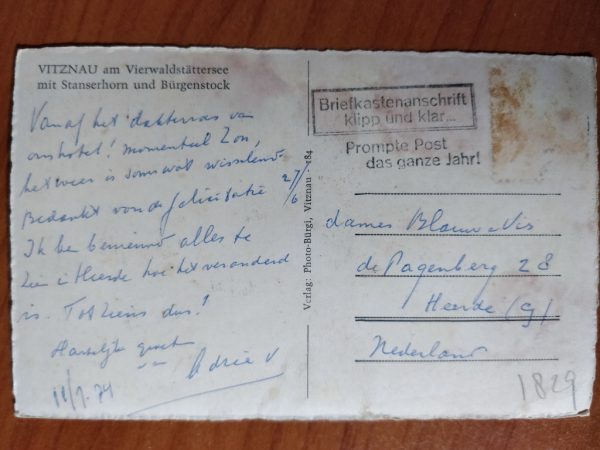 VITZNAU am Vierwaldstättersee
mit Stanserhorn und Bürgenstock
Vanaf het dakterras van
ons hotel! Momenteel Zon,
het weer is soms wat wisselend
Bedankt voor de felicitatie 27/6
Ik ben benieuwd alles te
zien in Heerde hoe het veranderd
is. Tot ziens dus!
Hartelijke groeten
van Adrie V
11/7.74
Verlag: Photo-Bürgi, Vitznau - 184
Briefkastenanschrift
klipp und klar...
Prompte Post
das ganze Jahr!
dames Blauw-Vis
de Pagenberg 28
Heerde (G)
Nederland
1829